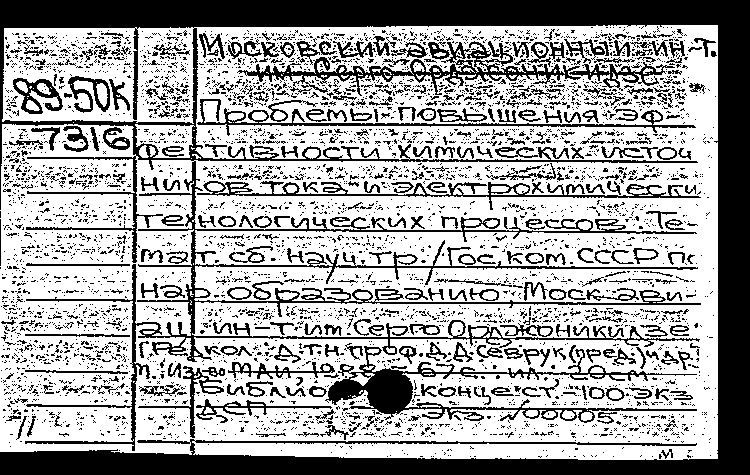 Московский авиационный ин-т.
им. Серго Орджоникидзе
89-50К
7316
Проблемы повышения эф-
фективности химических источ
ников тока и электрохимически
технологических процессов: Те-
мат. сб. науч. тр. / Гос. ком. СССР по
нар. образованию, Моск. ави-
ац. ин-т им. Серго Орджоникидзе
[Редкол.: д.т.н. проф. Д.Д. Севрук (пред.) и др.
М.: Изд-во МАИ, 1988. - 67с.: ил.; 20см.
Библио конце ст. - 100 экз
ДСП Экз. №00005
11
м